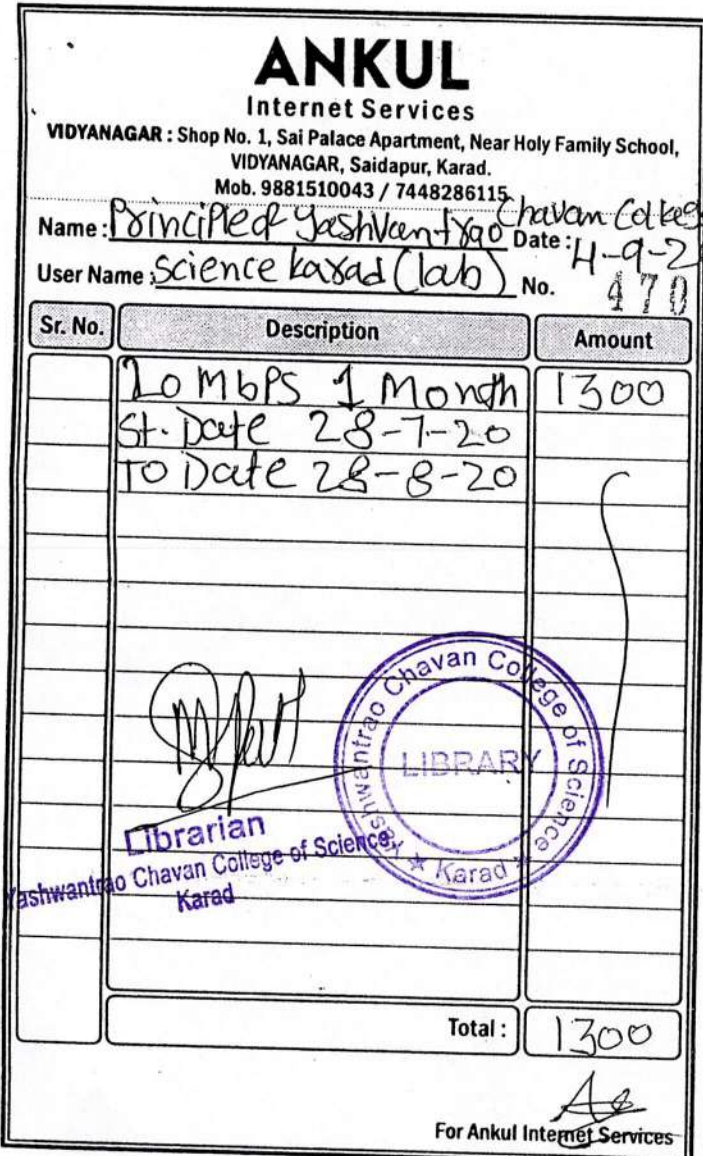 ANKUL
Internet Services
VIDYANAGAR : Shop No. 1, Sai Palace Apartment, Near Holy Family School,
VIDYANAGAR, Saidapur, Karad.
Mob. 9881510043 / 7448286115
Name : Principled Yashvantrao Chavan College
Date : 4-9-2
User Name : Science karad (lab) No. 470
Sr. No. Description Amount
20 Mbps 1 Month 1300
St. Date 28-7-20
To Date 28-8-20
Yashwantrao Chavan College of Science
LIBRARY
★ Karad ★
Librarian
Yashwantrao Chavan College of Science,
Karad
Total : 1300
For Ankul Internet Services